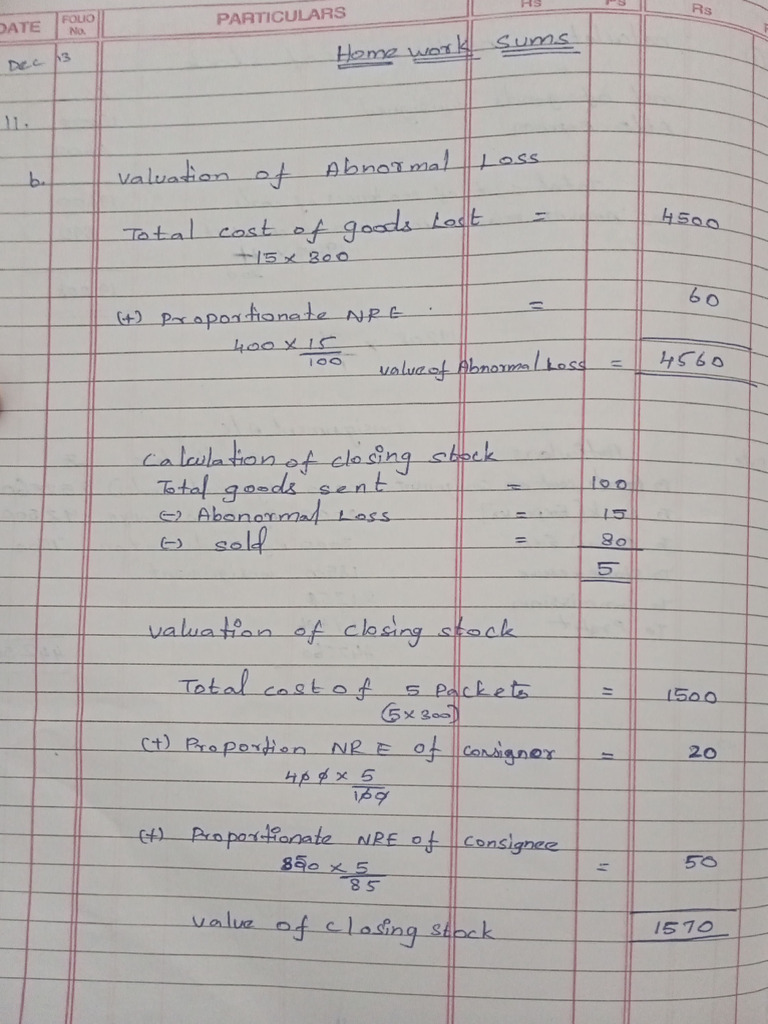 DATE FOLIO No. PARTICULARS Rs Ps Rs
Dec 13 Home work Sums
11.
b. Valuation of Abnormal Loss
Total cost of goods Lost = 4500
15 x 300
(+) Proportionate NRE = 60
400 x 15/100
value of Abnormal Loss = 4560
Calculation of closing stock
Total goods sent = 100
(-) Abonormal Loss = 15
(-) sold = 80
5
valuation of closing stock
Total cost of 5 Packets = 1500
(5 x 300)
(+) Proportion NRE of consignor = 20
400 x 5/100
(+) Proportionate NRE of consignee
850 x 5/85 = 50
value of closing stock 1570